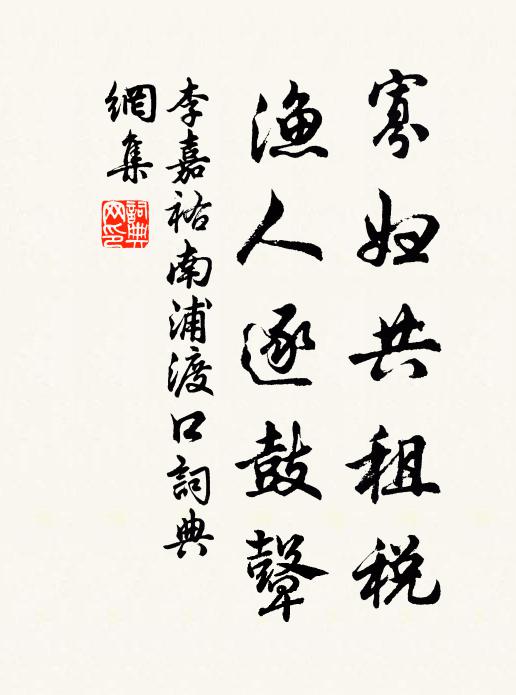 寡妇共租税
渔人逐鼓鼙
李嘉祐南浦渡口詞典
網集
詞典
网印